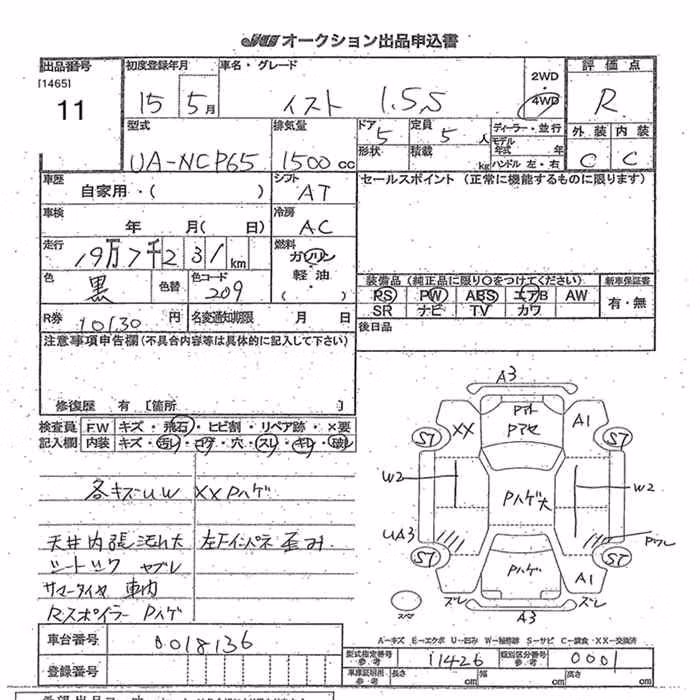 JU オークション出品申込書
出品番号 初度登録年月 車名・グレード 2WD 評価点
[1465] 4WD
11 15 5月 イスト 1.5S R
型式 排気量 ドア 定員 ディーラー・並行 外装 内装
5 5人 モデル年式 年
UA-NCP65 1500cc 形状 積載 kg ハンドル 左・右 C C
車歴 シフト セールスポイント (正常に機能するものに限ります)
自家用・( ) AT
車検 冷房
年 月( 日) AC
走行 燃料
19万7千231km ガソリン
色 色替 色コード 軽油 装備品 (純正品に限り○をつけてください) 新車保証書
黒 209 ( ) PS PW ABS エアB AW 有・無
SR ナビ TV カワ
R券 10130円 名変通知期限 月 日 後日品
注意事項申告欄 (不具合内容等は具体的に記入して下さい)
修復歴 有 [箇所 ]
検査員 F.W キズ・飛石・ヒビ割・リペア跡・×要
記入欄 内装 キズ・汚レ・コゲ・穴・スレ・キレ・破レ
各キズUW XXPハゲ
天井内張汚れ大 左Fインパネ歪み
シートロック ヤブレ
サマータイヤ 車内
Rスポイラー Pハゲ
A3
XX A1
S7 S7
W2 Pハゲ大 W2
UA3
S7 Pハゲ S7
A1
ズレ A3 ズレ
A-キズ E-エクボ U-凹み W-補修跡 S-サビ C-腐食 XX-交換済
車台番号 0018136 型式指定番号 参考 11426 類別区分番号 参考 0001
登録番号 車庫証明用 参考 長さ cm 幅 cm 高さ cm